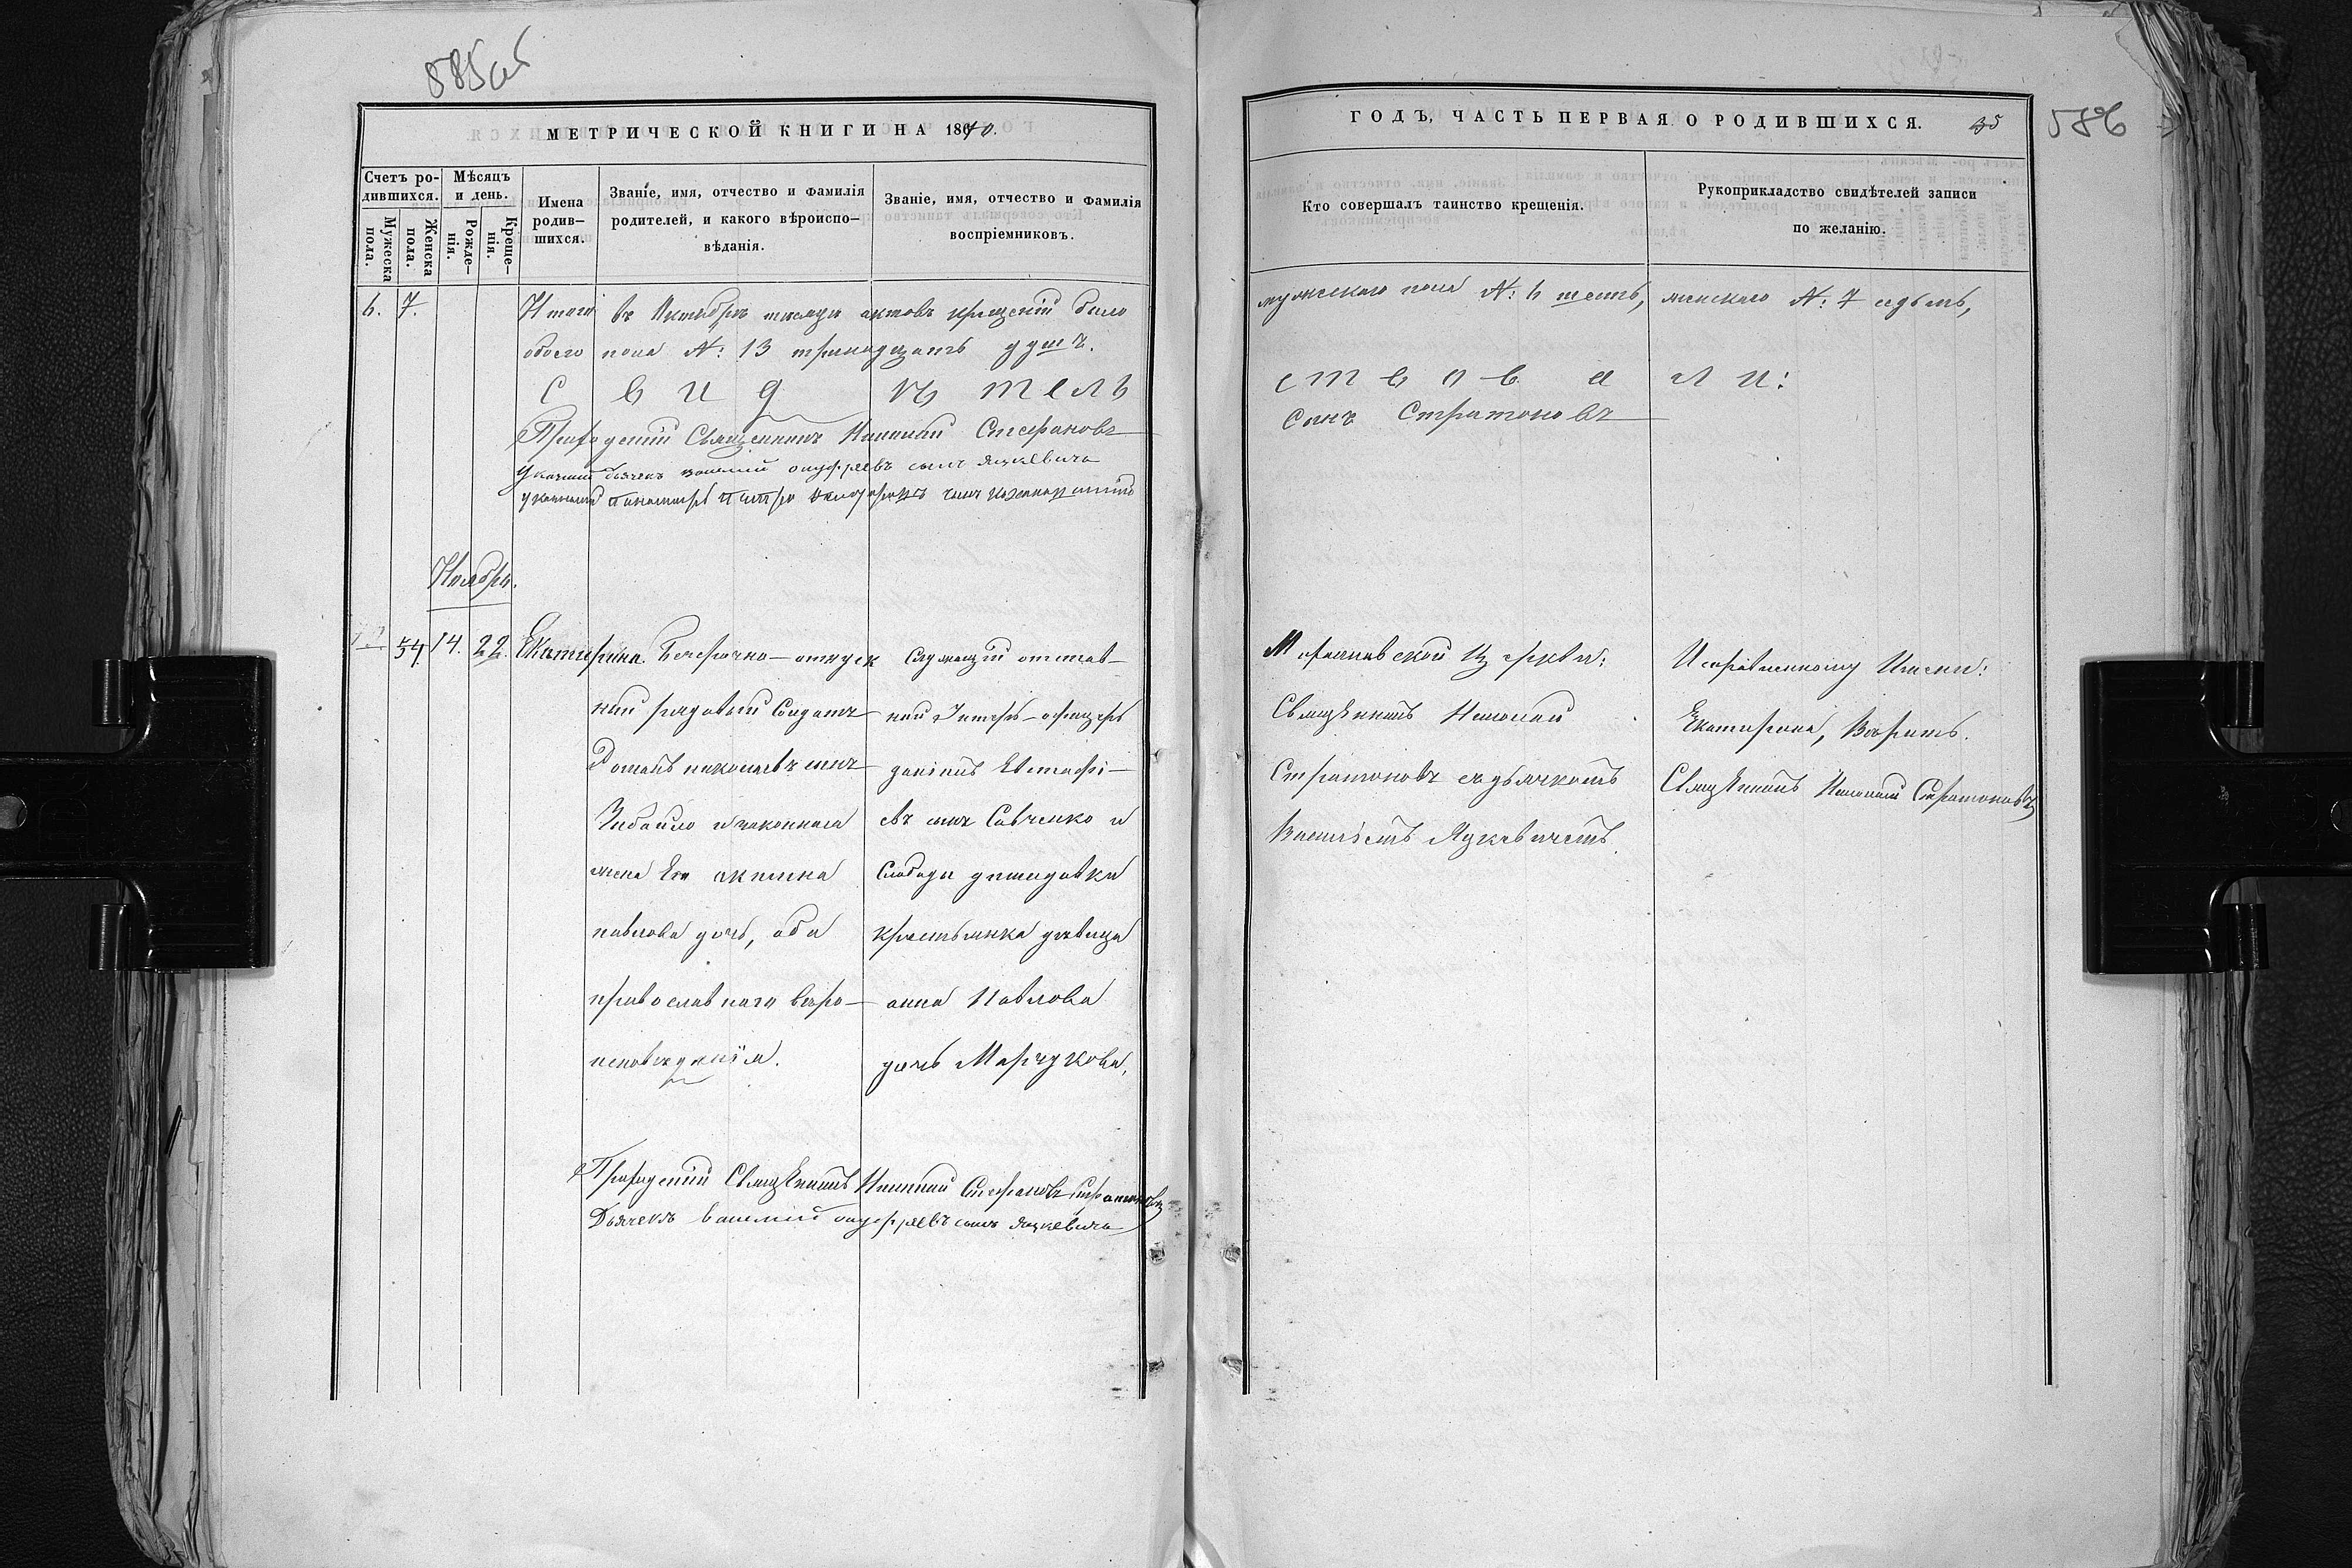 585об
МЕТРИЧЕСКОЙ КНИГИ НА 1870.
Счетъ ро-
дившихся.
Мѣсяцъ
и день.
Мужеска
пола.
Женска
пола.
Рожде-
нія.
Креще-
нія.
Имена
родив-
шихся.
Званіе, имя, отчество и фамилія
родителей, и какого вѣроиспо-
вѣданія.
Званіе, имя, отчество и фамилія
воспріемниковъ.
6. 7. Итого въ Октябрѣ месяцѣ актовъ крещеній было
обоего пола №: 13 тринадцать душъ.
С в и д ѣ т е л ь
Приходскій Священникъ Николай Стефановъ
Указный дьячекъ василій онуфріевъ сынъ Яцкевичъ
указный пономарь
Ноября.
54. 14. 22. Екатерина.
Безсрочно-отпуск
ный рядовый Солдатъ
николаевъ сынъ
и законная
жена Его акилина
павлова дочь, оба
православнаго веро-
исповѣданія.
Служащій отстав-
ной Унтеръ-офицеръ
даніилъ Евстафі-
евъ сынъ Савченко и
Слободы демидовки
крестьянка девица
анна Павлова
дочь Марчукова,
Приходскій Священникъ Николай Стефановъ Стратоновъ
Дьячекъ василій онуфріевъ сынъ Яцкевичъ
ГОДЪ, ЧАСТЬ ПЕРВАЯ О РОДИВШИХСЯ.
35
586
Кто совершалъ таинство крещенія.
Рукоприкладство свидѣтелей записи
по желанію.
мужескаго пола №: 6 шесть, женскаго №: 7 седьмь,
с т в о в а л и:
Сынъ Стратоновъ
церкви:
Священникъ Николай
Стратоновъ съ дьячкомъ
Василіемъ Яцкевичемъ.
Исправленному Имени:
Екатерина, Верить.
Священникъ Николай Стратоновъ